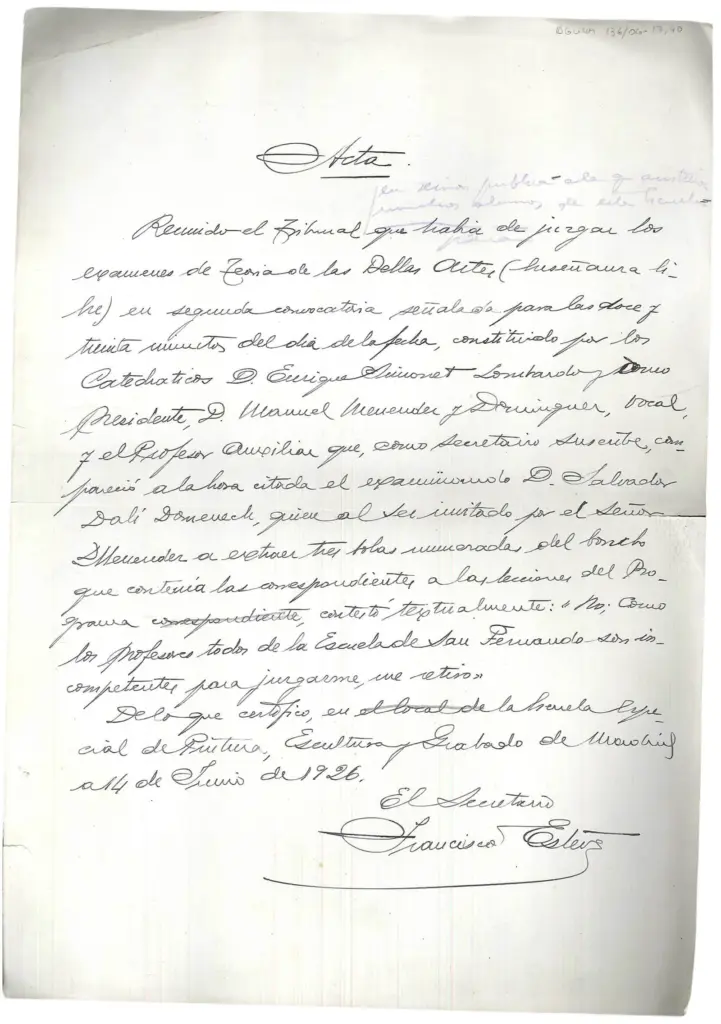 Acta.
en sesion publica a la que asistieron
muchos alumnos de esta Escuela
Reunido el Tribunal que habia de juzgar los
examenes de Teoria de las Bellas Artes (Enseñanza li-
bre) en segunda convocatoria, señalada para las doce y
treinta minutos del dia de la fecha, constituido por los
Catedraticos D. Enrique Simonet Lombardo, como
Presidente, D. Manuel Menendez y Dominguez, Vocal,
y el Profesor Auxiliar que, como secretario suscribe, com-
pareció a la hora citada el examinando D. Salvador
Dalí Domenech, quien al ser invitado por el Señor
Menendez a extraer tres bolas numeradas del bombo
que contenia las correspondientes a las lecciones del Pro-
grama correspondiente, contestó textualmente: "No; Como
los profesores todos de la Escuela de San Fernando son in-
competentes para juzgarme, me retiro"
De lo que certifico, en el local de la Escuela Espe-
cial de Pintura, Escultura y Grabado de Madrid
a 14 de Junio de 1926.
El Secretario
Francisco Esteve